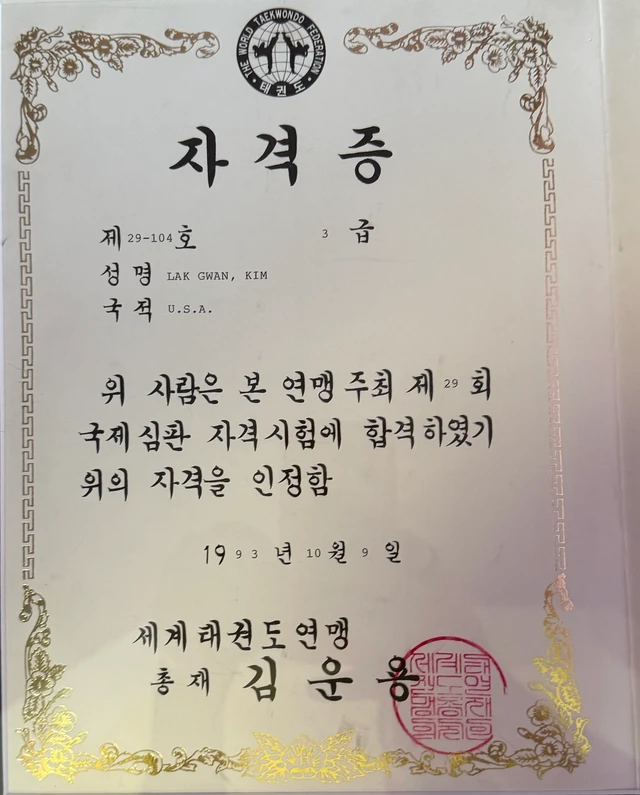 THE WORLD TAEKWONDO FEDERATION
태권도
자격증
제 29-104 호 3 급
성명 LAK GWAN, KIM
국적 U.S.A.
위 사람은 본 연맹 주최 제 29 회
국제심판 자격시험에 합격하였기
위의 자격을 인정함
1993년 10월 9일
세계태권도연맹
총재 김운용